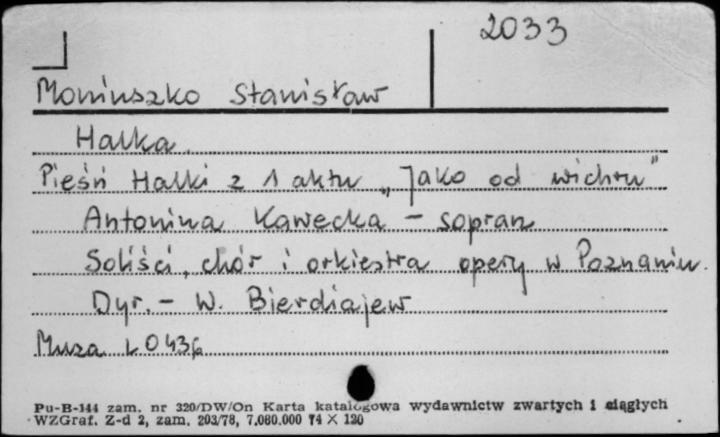 2033
Moniuszko Stanisław
Halka
Pieśń Halki z 1 aktu „Jako od wichru"
Antonina Kawecka - sopran
Soliści, chór i orkiestra opery w Poznaniu.
Dyr. - W. Bierdiajew
Muza L 0436
Pu-B-144 zam. nr 320/DW/On Karta katalogowa wydawnictw zwartych i ciągłych
WZGraf. Z-d 2, zam. 203/78, 7.080.000 74 X 120